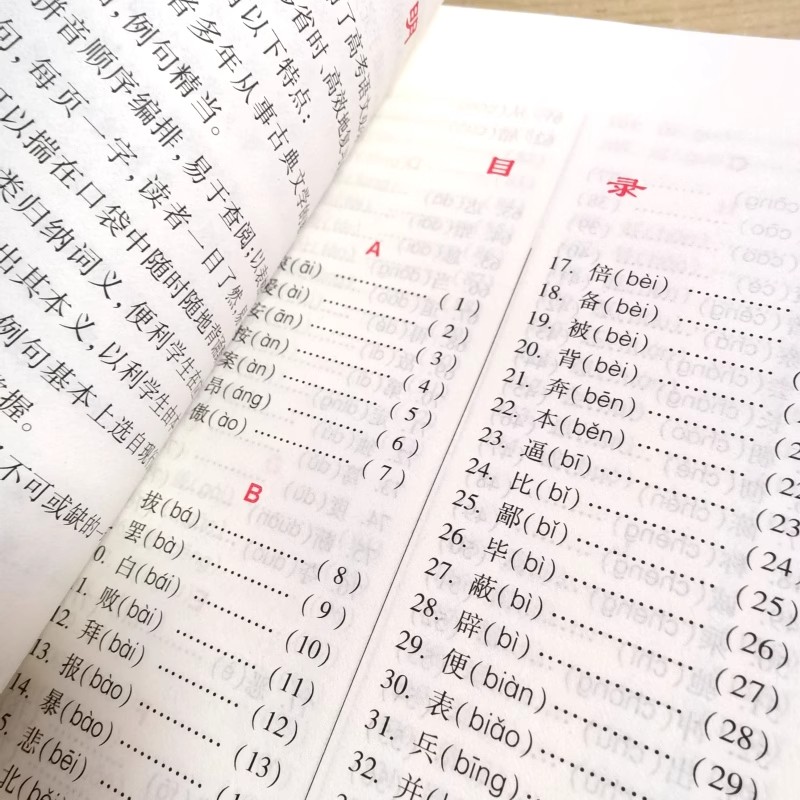 明
了高考语文
省时、高效地
以下特点：
者多年从事古典文学
，例句精当。
拼音顺序编排，易于查阅；以表
句，每页一字，读者一目了然，
可以揣在口袋中随时随地背
类归纳词义，便利学生在
出其本义，以利学生由
例句基本上选自现
握。
不可或缺的一
目 录
A
(āi) ……………… (1)
(ài) ……………… (2)
安(ān) ……………… (3)
按(àn) ……………… (4)
案(àn) ……………… (5)
昂(áng) ……………… (6)
傲(ào) ……………… (7)
B
拔(bá) ……………… (8)
罢(bà) ……………… (9)
0. 白(bái) ……………… (10)
1. 败(bài) ……………… (11)
12. 拜(bài) ……………… (12)
13. 报(bào) ……………… (13)
14. 暴(bào) ………………
5. 悲(bēi) ………………
北(bě
17. 倍(bèi) ………………
18. 备(bèi) ………………
19. 被(bèi) ………………
20. 背(bèi) ………………
21. 奔(bēn) ………………
22. 本(běn) ………………
23. 逼(bī) ……………… (22
24. 比(bǐ) ……………… (23
25. 鄙(bǐ) ……………… (24
26. 毕(bì) ……………… (25)
27. 蔽(bì) ……………… (26)
28. 辟(bì) ……………… (27)
29. 便(biàn) ……………… (28)
30. 表(biǎo) ……………… (29)
31. 兵(bīng) ………………
32. 并(bìng